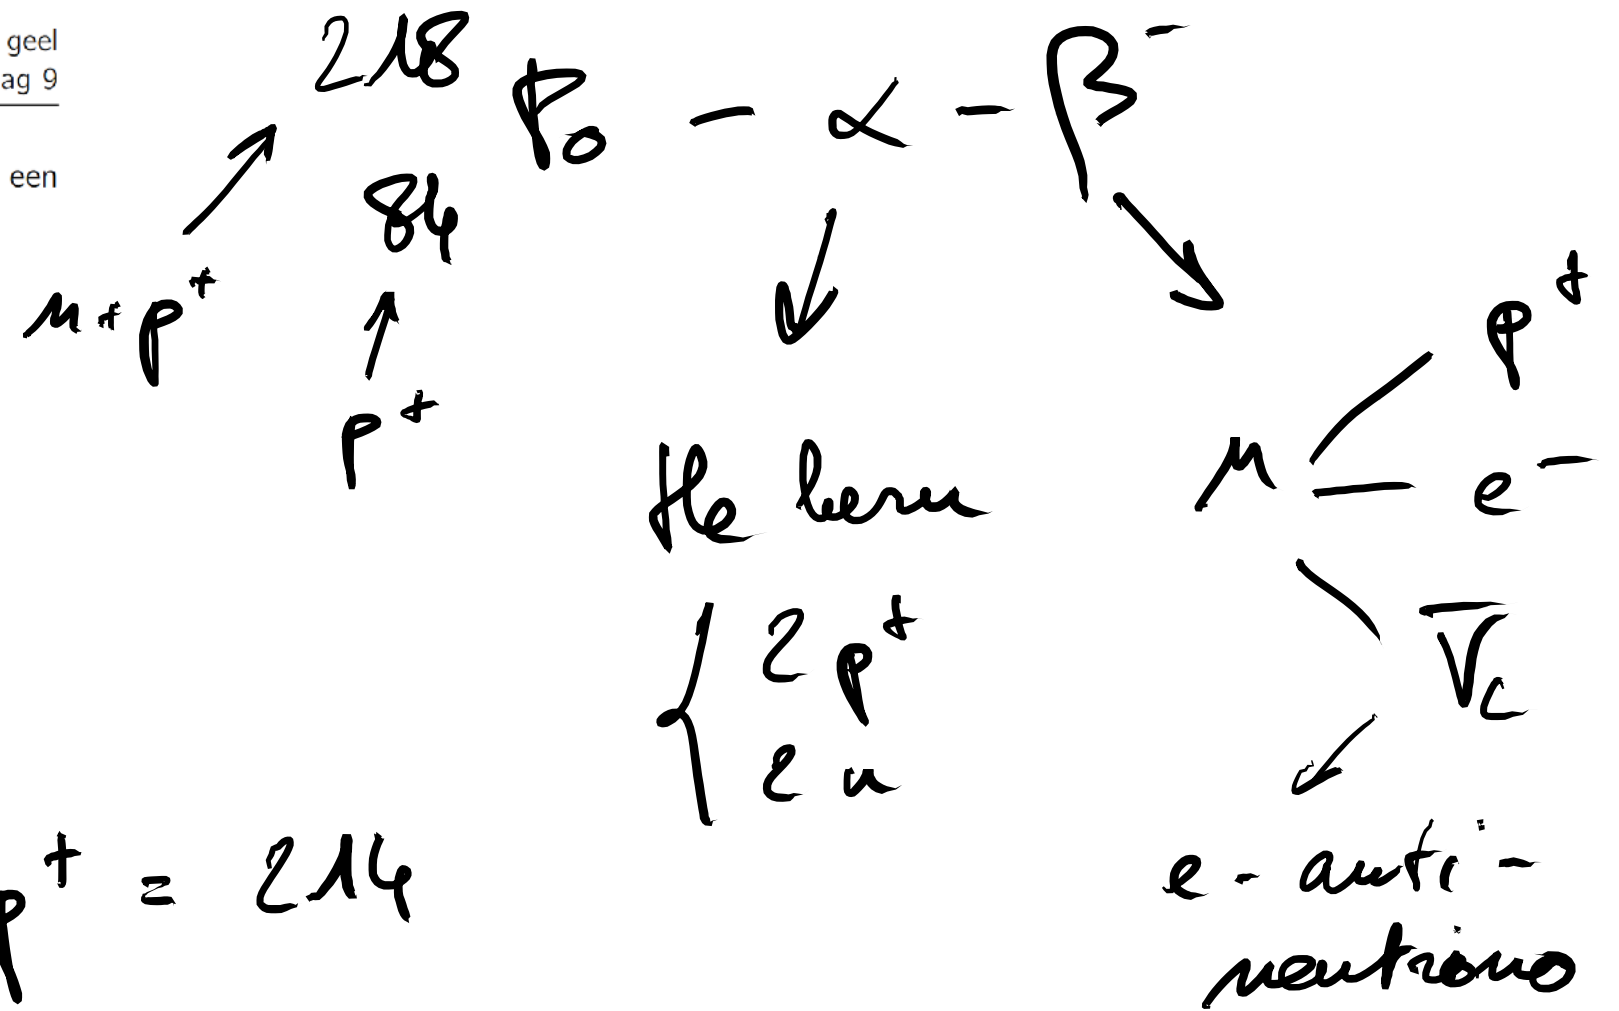 geel
ag 9
een
218
Po - α - β⁻
84
n + p⁺
p⁺
He kern
2 p⁺
2 n
n
p⁺
e⁻
ν̄e
e - anti -
neutrino
p⁺ = 214